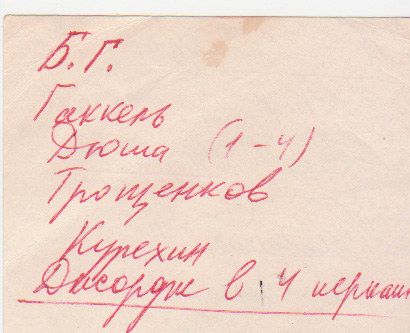 Б.Г.
Гаккель
Дюша (1-4)
Трощенков
Курехин
Джордж в 4 первых